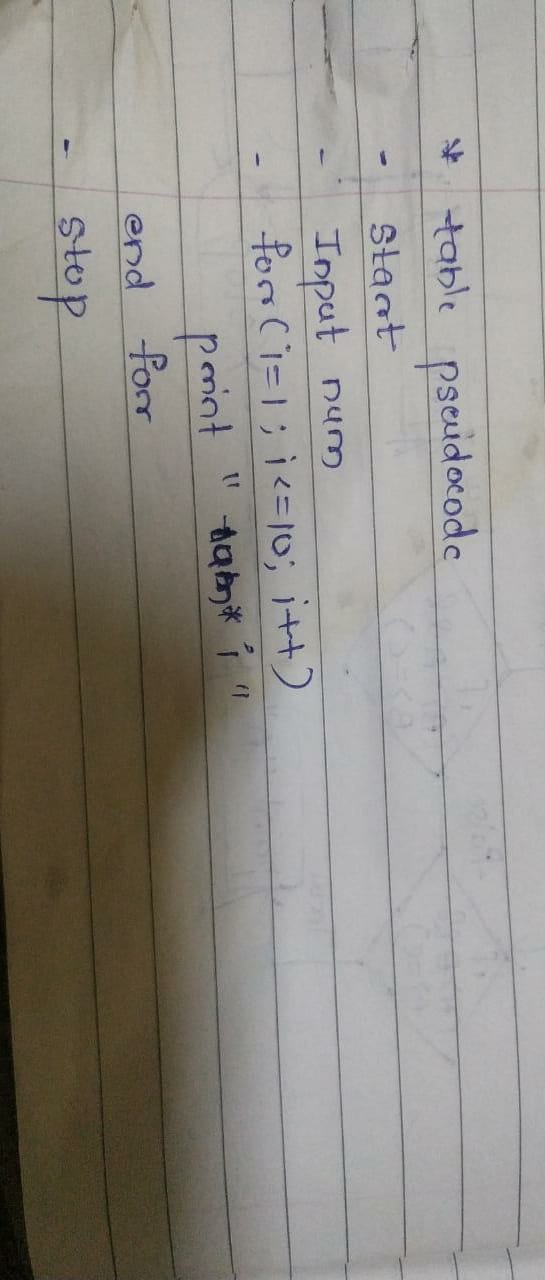 * table pseudocode
- Start
- Input num
- for(i=1; i<=10; i++)
print " * i "
end for
- stop